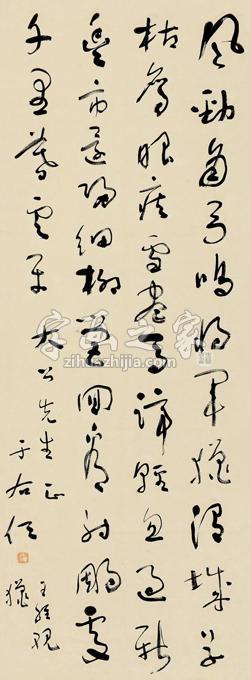 風勁角弓鳴將軍獵渭城草
枯鷹眼疾雪盡馬蹄輕忽過新
豐市還歸細柳營回看射鵰處
千里暮雲平 大公先生正
于右任
王維觀
獵
字画之家
zihuazhijia.com